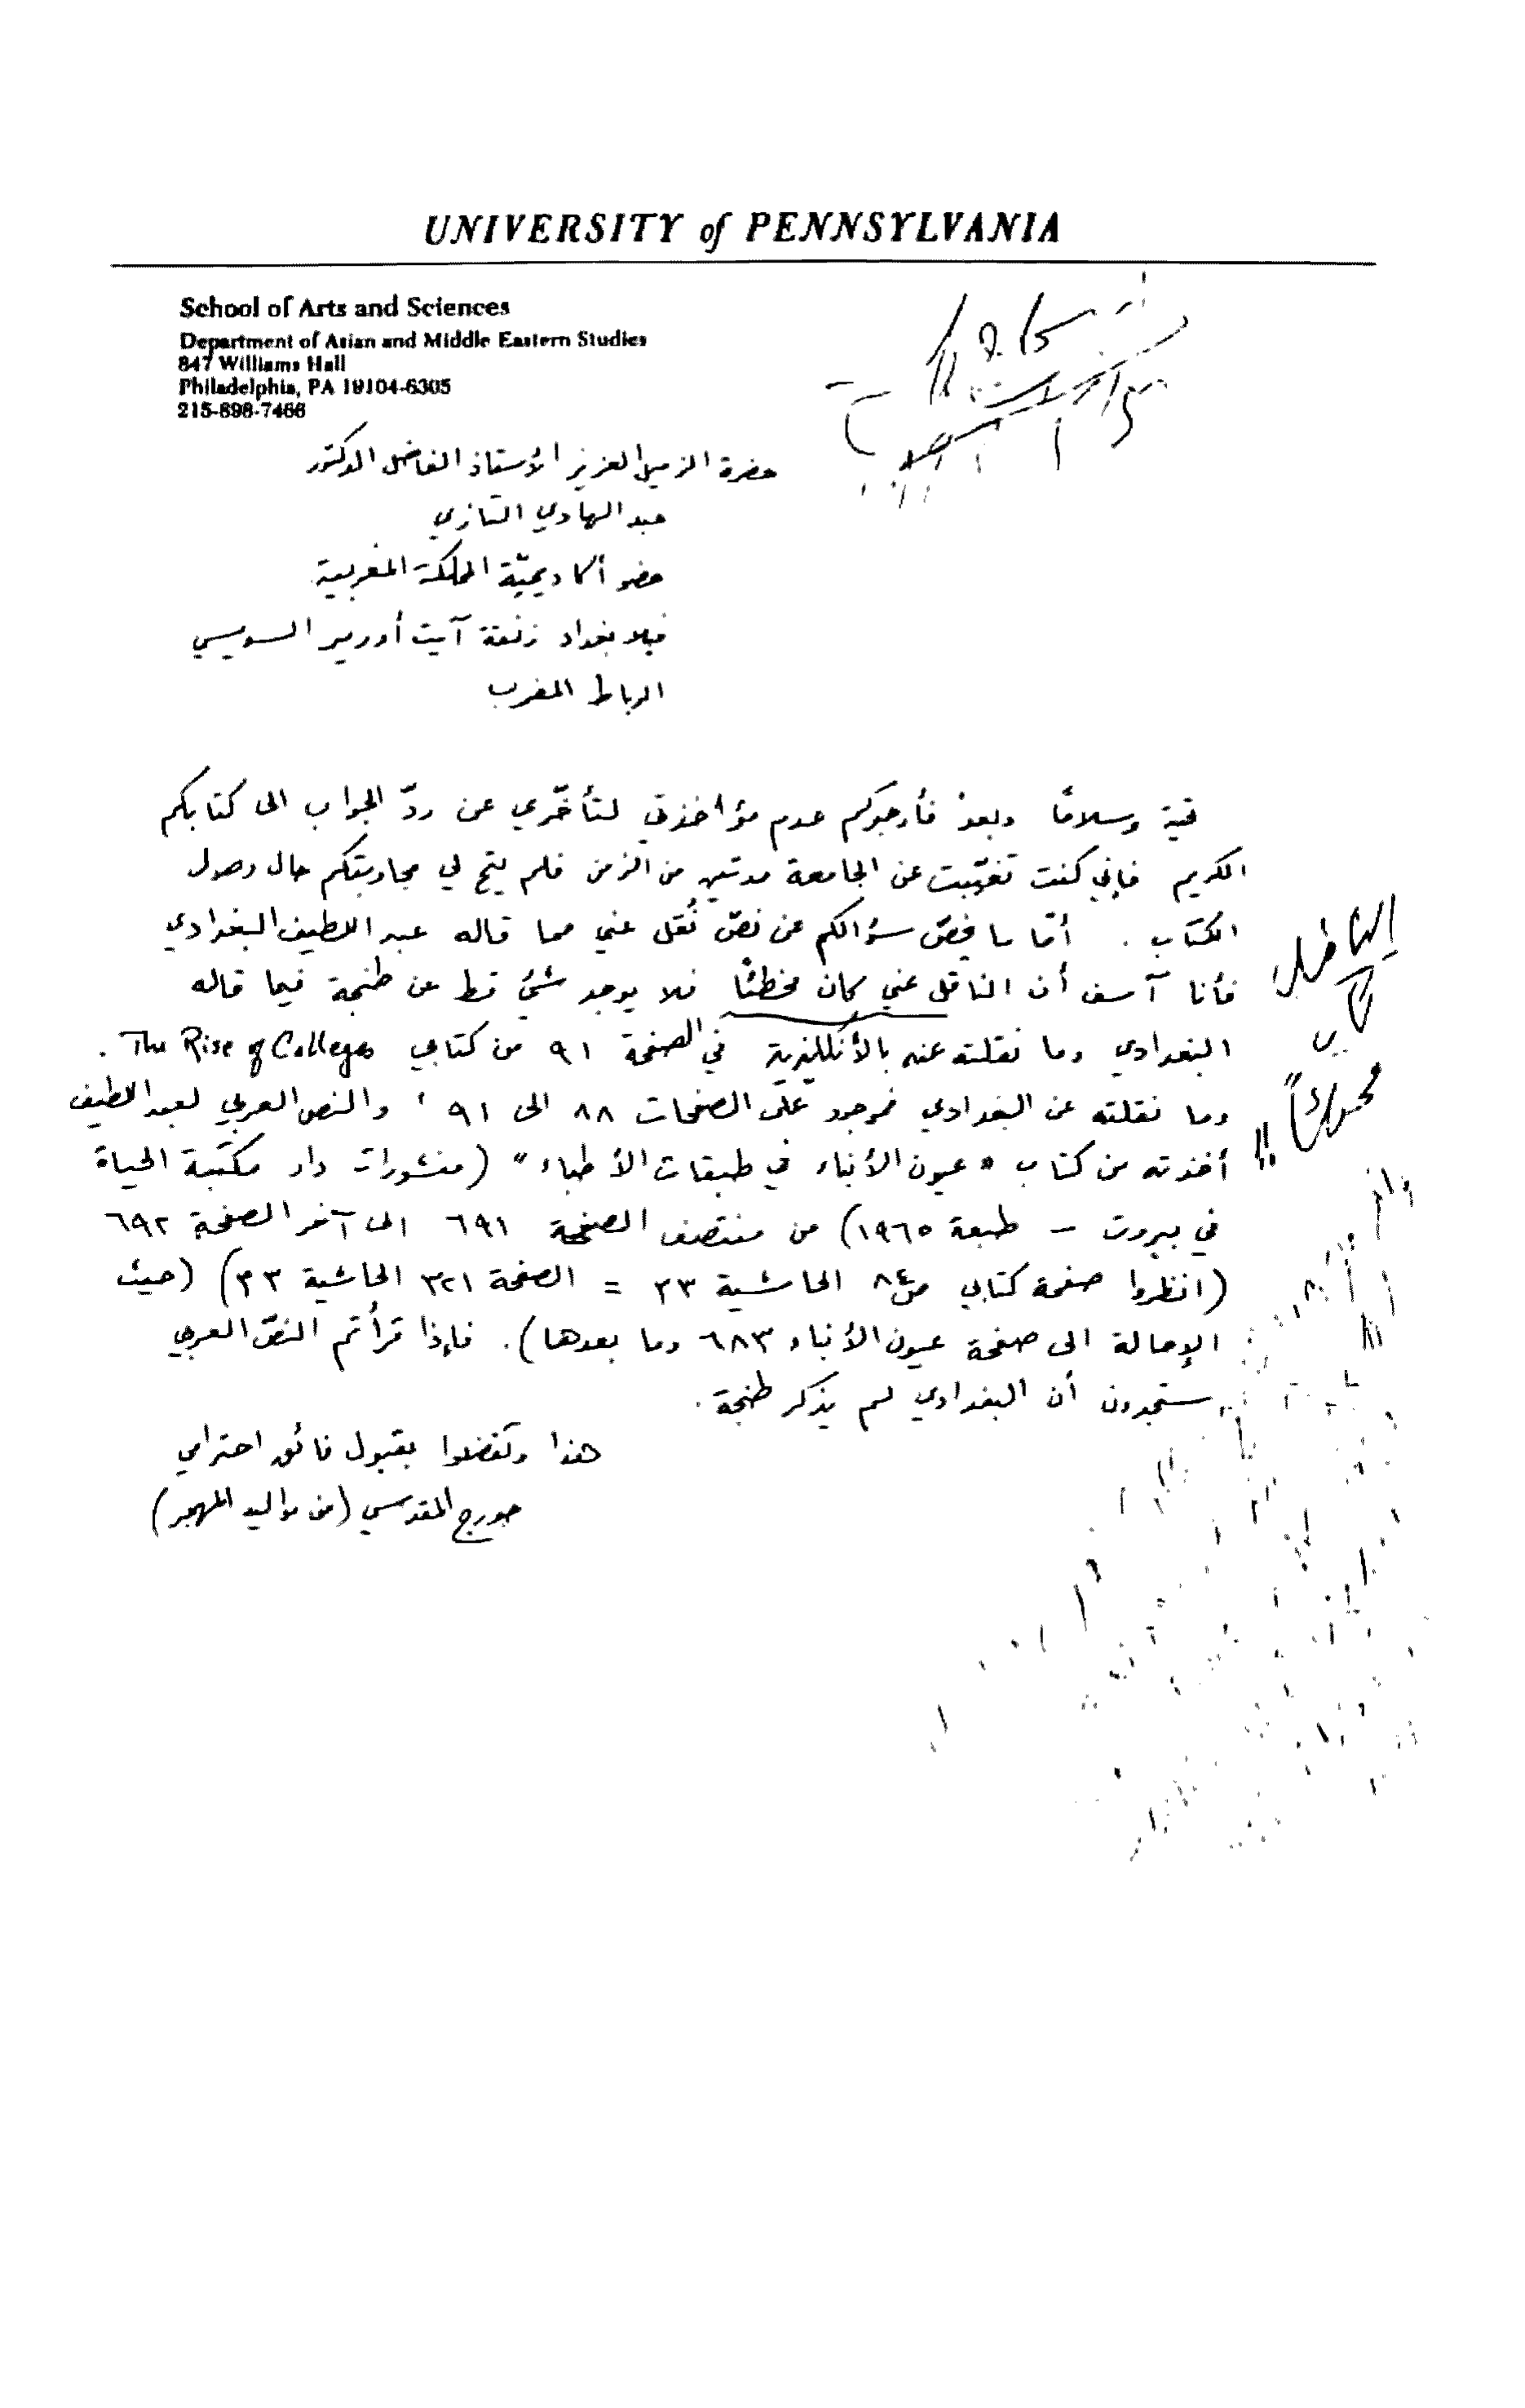 UNIVERSITY of PENNSYLVANIA
School of Arts and Sciences
Department of Asian and Middle Eastern Studies
847 Williams Hall
Philadelphia, PA 19104-6305
215-898-7466
حضرة الزميل العزيز الأستاذ الفاضل الدكتور
عبد الهادي التازي
عضو أكاديميّة المملكة المغربية
فيلا بغداد زنقة آيت أورير السويسي
الرباط المغرب
تحية وسلامًا وبعدُ فأرجوكم عدم مؤاخذتي لتأخّري عن ردّ الجواب الى كتابكم
الكريم فإني كنت تغيّبت عن الجامعة مدتين من الزمن فلم يتح لي مجاوبتكم حال وصول
الكتاب . أمّا ما يخصّ سؤالكم عن نصّ نُقل عني مما قاله عبد اللطيف البغدادي
فأنا آسف أن الناقل عني كان مخطئًا فلا يوجد شئ قط عن طنجة فيما قاله
البغدادي وما نقلته عنه بالأنكليزية في الصفحة ٩١ من كتابي The Rise of Colleges .
وما نقلته عن البغدادي فموجود على الصفحات ٨٨ الى ٩١ ، والنص العربي لعبد اللطيف
أخذته من كتاب «عيون الأنباء في طبقات الأطباء» (منشورات دار مكتبة الحياة
في بيروت – طبعة ١٩٦٥) من منتصف الصفحة ٦٩١ الى آخر الصفحة ٦٩٢
(انظروا صفحة كتابي ص ٨٤ الحاشية ٣٣ = الصفحة ٣٢١ الحاشية ٣٣) (حيث
الإحالة الى صفحة عيون الأنباء ٦٨٣ وما بعدها). فإذا قرأتم النصّ العربي
ستجدون أن البغدادي لم يذكر طنجة .
هذا وتفضلوا بقبول فائق احترامي
جورج المقدسي (من مواليد المهجر)